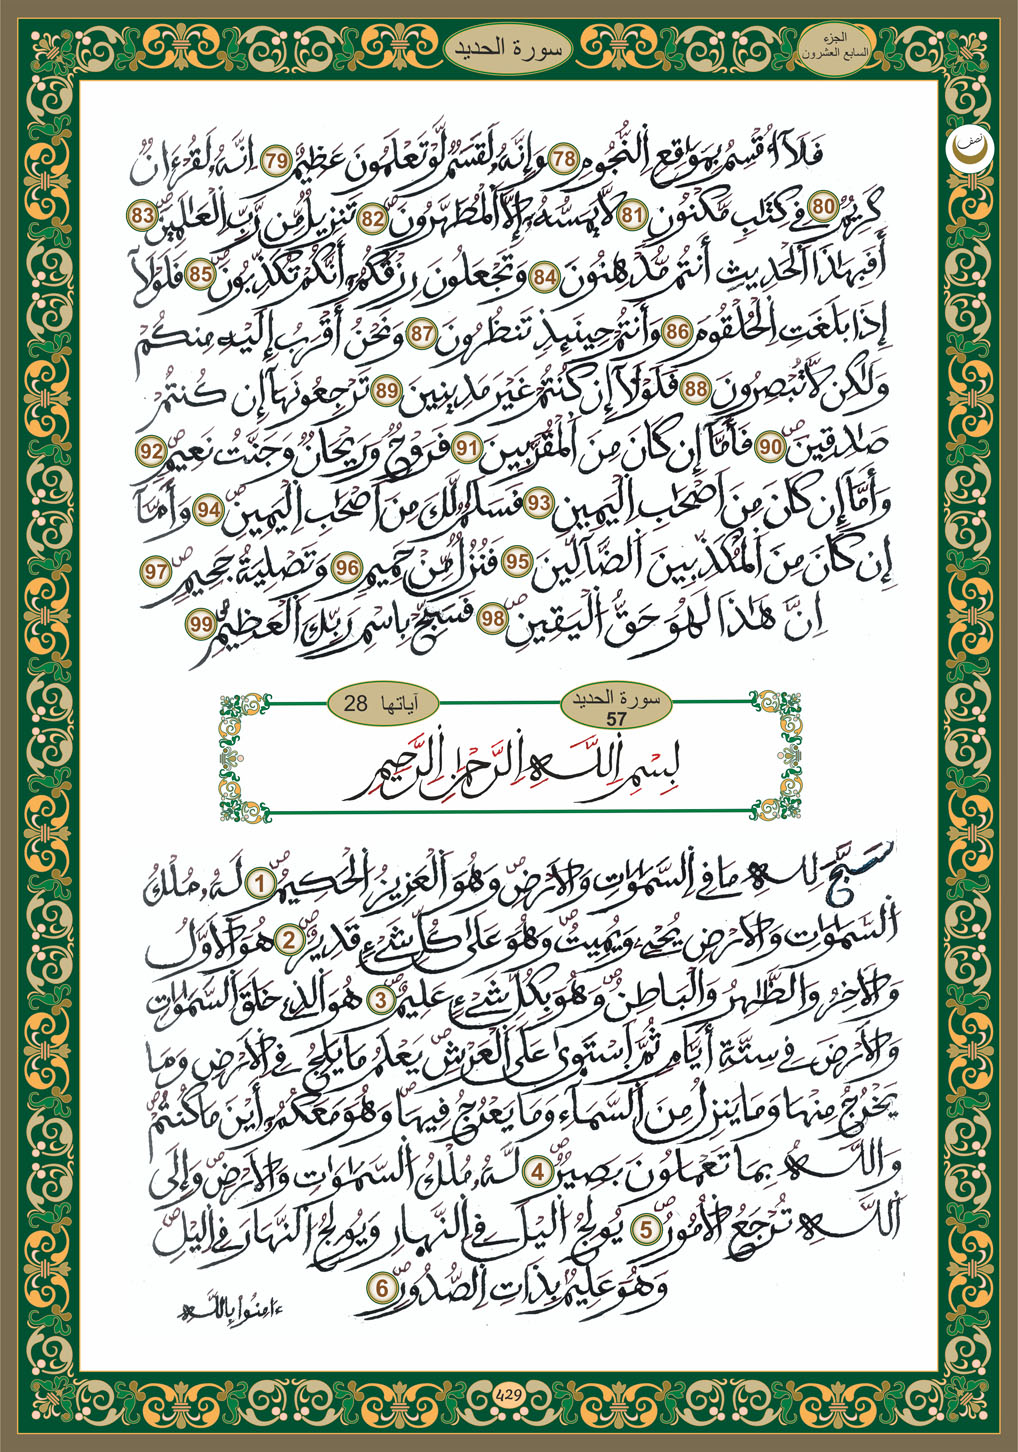 الجزء
السابع العشرون
سورة الحديد
نصف
فَلَآ أُقْسِمُ بِمَوَٰقِعِ اِ۬لنُّجُومِ 78 وَإِنَّهُۥ لَقَسَمٌ لَّوْ تَعْلَمُونَ عَظِيمٌ 79 اِنَّهُۥ لَقُرْءَانٌ
كَرِيمٌ 80 فِي كِتَٰبٍ مَّكْنُونٍ 81 لَّا يَمَسُّهُۥٓ إِلَّا اَ۬لْمُطَهَّرُونَ 82 تَنزِيلٌ مِّن رَّبِّ اِ۬لْعَٰلَمِينَ 83
أَفَبِهَٰذَا اَ۬لْحَدِيثِ أَنتُم مُّدْهِنُونَ 84 وَتَجْعَلُونَ رِزْقَكُمُۥٓ أَنَّكُمْ تُكَذِّبُونَ 85 فَلَوْلَآ
إِذَا بَلَغَتِ اِ۬لْحُلْقُومَ 86 وَأَنتُمْ حِينَئِذٍ تَنظُرُونَ 87 وَنَحْنُ أَقْرَبُ إِلَيْهِ مِنكُمْ
وَلَٰكِن لَّا تُبْصِرُونَ 88 فَلَوْلَآ إِن كُنتُمْ غَيْرَ مَدِينِينَ 89 تَرْجِعُونَهَآ إِن كُنتُمْ
صَٰدِقِينَ 90 فَأَمَّآ إِن كَانَ مِنَ اَ۬لْمُقَرَّبِينَ 91 فَرَوْحٌ وَرَيْحَانٌ وَجَنَّتُ نَعِيمٍ 92
وَأَمَّآ إِن كَانَ مِنَ اَصْحَٰبِ اِ۬لْيَمِينِ 93 فَسَلَٰمٌ لَّكَ مِنَ اَصْحَٰبِ اِ۬لْيَمِينِ 94 وَأَمَّآ
إِن كَانَ مِنَ اَ۬لْمُكَذِّبِينَ اَ۬لضَّآلِّينَ 95 فَنُزُلٌ مِّنْ حَمِيمٍ 96 وَتَصْلِيَةُ جَحِيمٍ 97
اِنَّ هَٰذَا لَهُوَ حَقُّ اُ۬لْيَقِينِ 98 فَسَبِّحْ بِاسْمِ رَبِّكَ اَ۬لْعَظِيمِ 99
سورة الحديد
57
آياتها 28
بِسْمِ اِ۬للَّهِ اِ۬لرَّحْمَٰنِ اِ۬لرَّحِيمِ
سَبَّحَ لِلهِ مَا فِي اِ۬لسَّمَٰوَٰتِ وَالْأَرْضِ وَهُوَ اَ۬لْعَزِيزُ اُ۬لْحَكِيمُ 1 لَهُۥ مُلْكُ
اُ۬لسَّمَٰوَٰتِ وَالْأَرْضِ يُحْيِۦ وَيُمِيتُ وَهُوَ عَلَىٰ كُلِّ شَيْءٍ قَدِيرٌ 2 هُوَ اَ۬لْأَوَّلُ
وَالْأَخِرُ وَالظَّٰهِرُ وَالْبَاطِنُ وَهُوَ بِكُلِّ شَيْءٍ عَلِيمٌ 3 هُوَ اَ۬لذِي خَلَقَ اَ۬لسَّمَٰوَٰتِ
وَالْأَرْضَ فِي سِتَّةِ أَيَّامٍ ثُمَّ اَ۪سْتَوَىٰ عَلَى اَ۬لْعَرْشِ يَعْلَمُ مَا يَلِجُ فِي اِ۬لْأَرْضِ وَمَا
يَخْرُجُ مِنْهَا وَمَا يَنزِلُ مِنَ اَ۬لسَّمَآءِ وَمَا يَعْرُجُ فِيهَا وَهُوَ مَعَكُمُۥٓ أَيْنَ مَا كُنتُمْ
وَاللَّهُ بِمَا تَعْمَلُونَ بَصِيرٌ 4 لَّهُۥ مُلْكُ اُ۬لسَّمَٰوَٰتِ وَالْأَرْضِ وَإِلَى
اَ۬للَّهِ تُرْجَعُ اُ۬لْأُمُورُ 5 يُولِجُ اُ۬ليْلَ فِي اِ۬لنَّهَارِ وَيُولِجُ اُ۬لنَّهَارَ فِي اِ۬ليْلِ
وَهُوَ عَلِيمٌ بِذَاتِ اِ۬لصُّدُورِ 6
ءَامِنُوا بِاللَّهِ
429